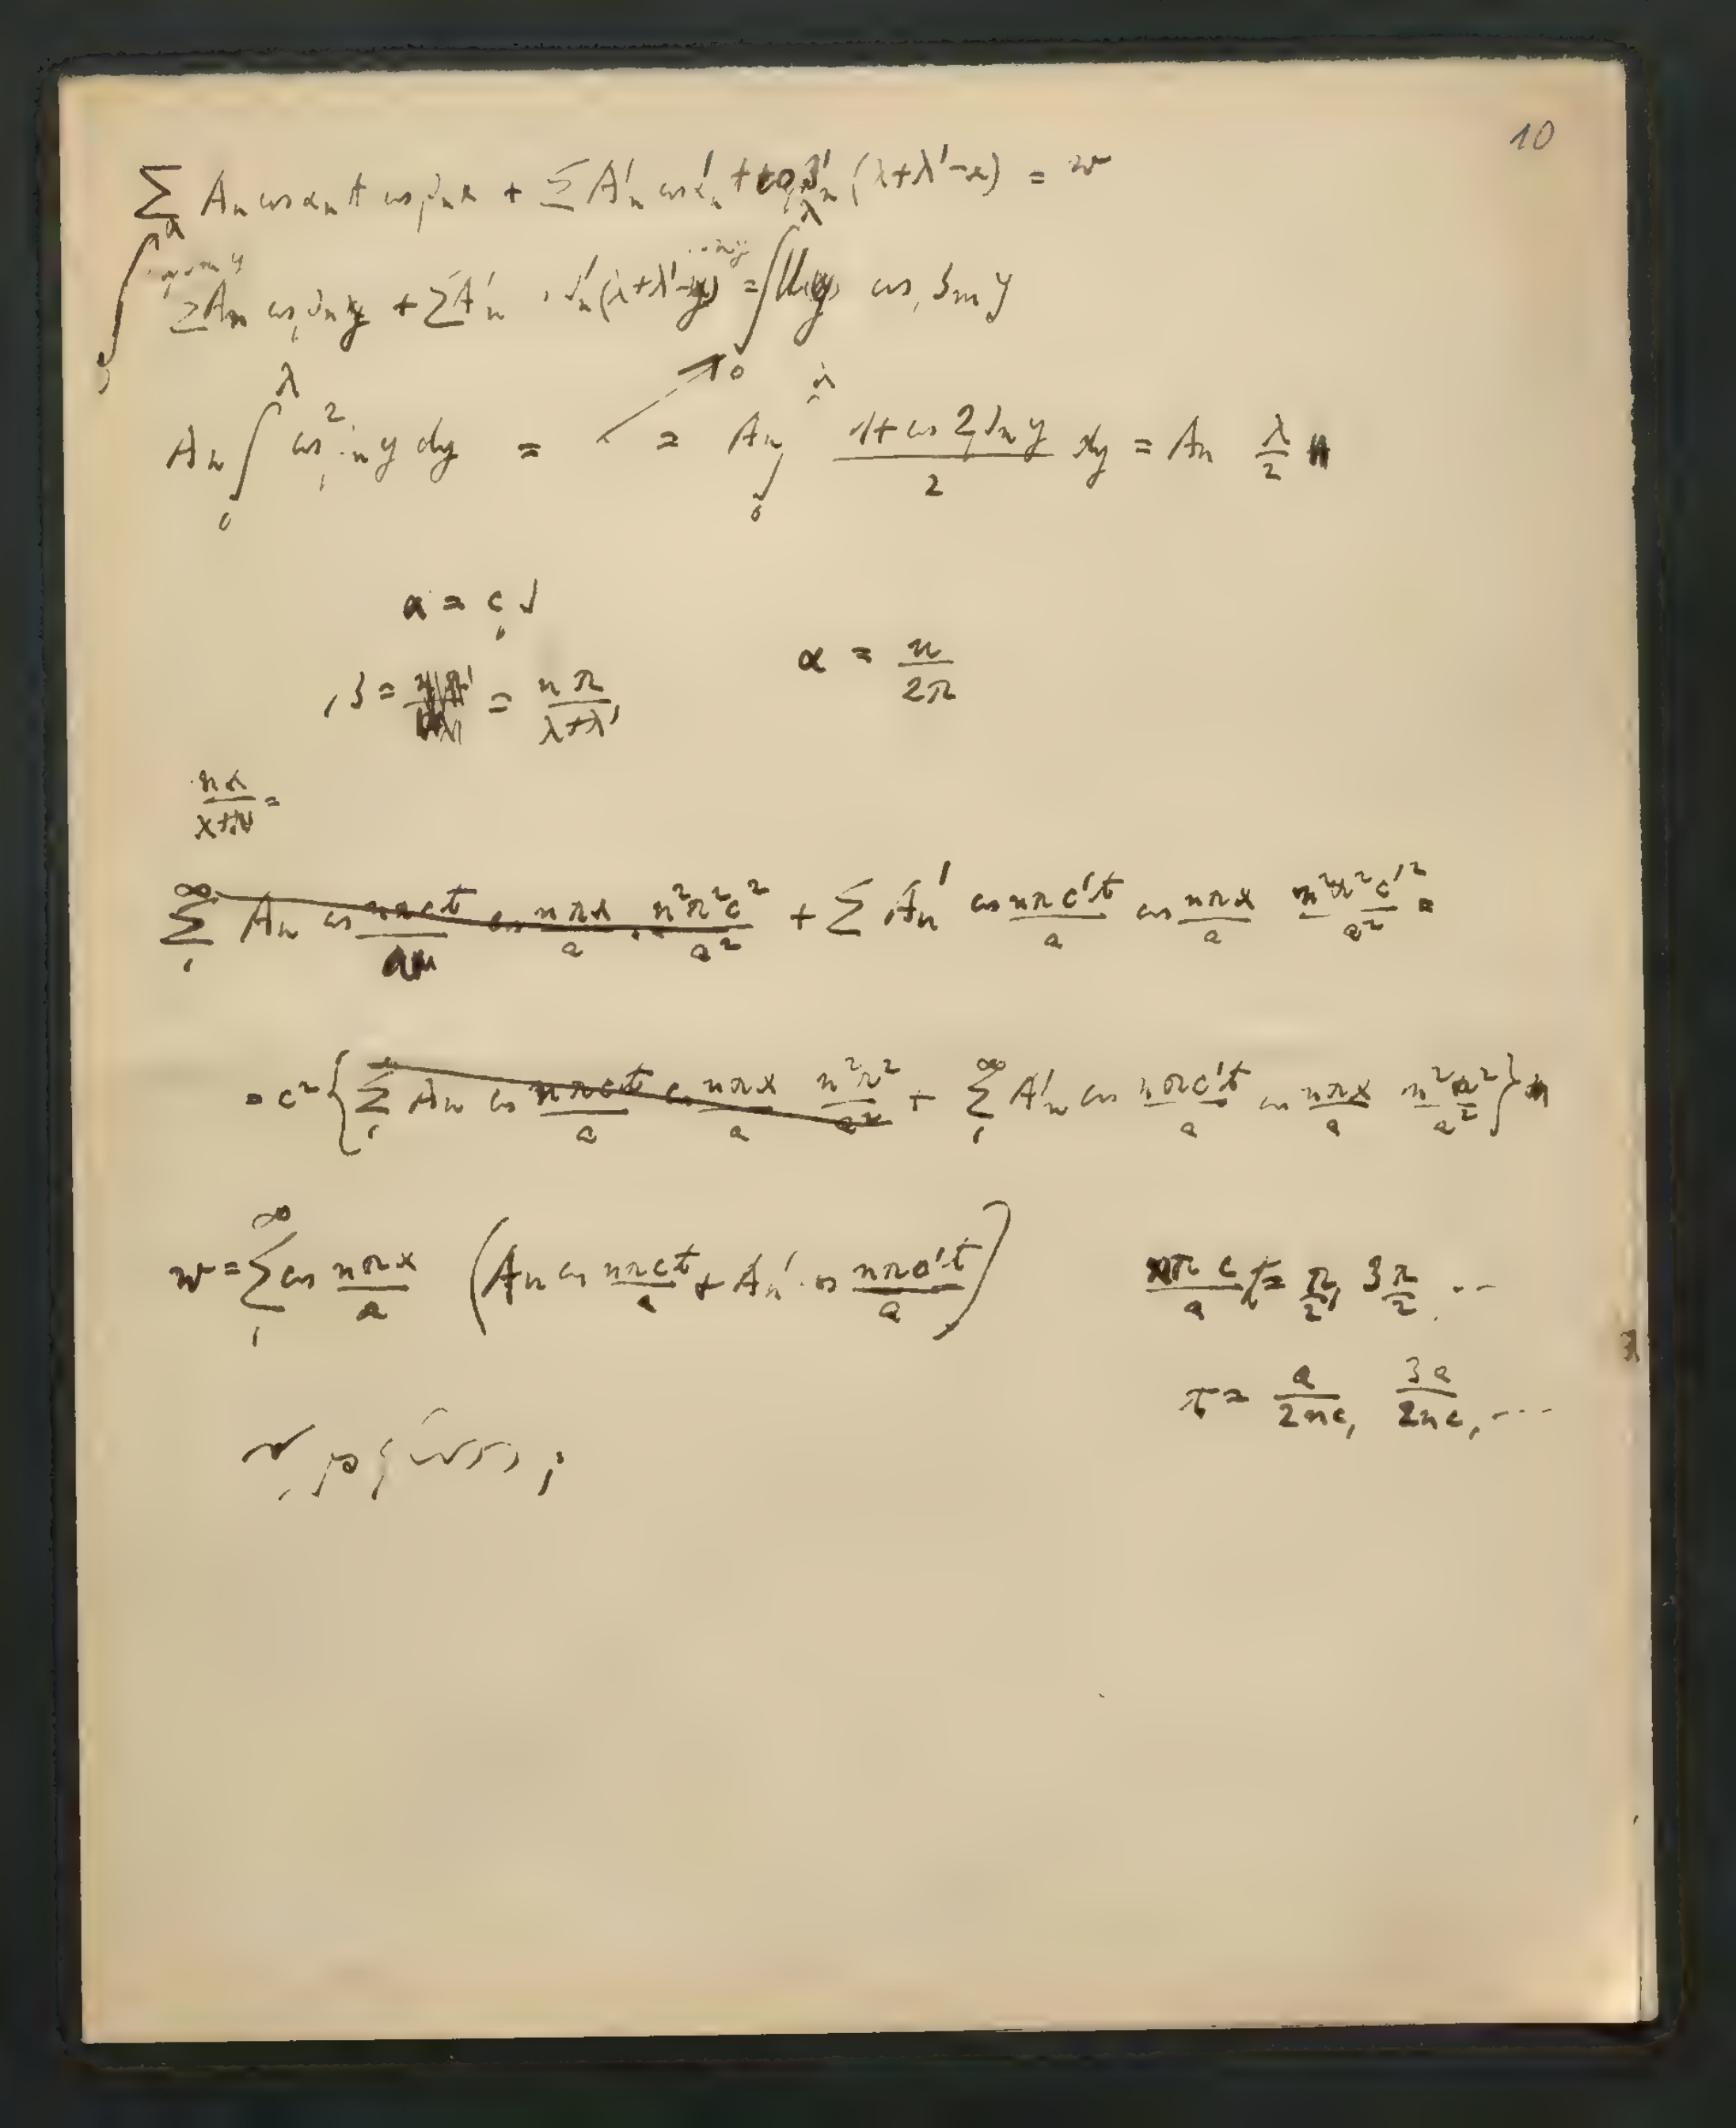 10
Σ Aₙ cos αₙt cos βₙx + Σ A'ₙ cos α'ₙt cos β'ₙ (λ+λ'-x) = w
ΣAₙ cos βₙy + ΣA'ₙ β'ₙ(λ+λ'-y) = ∫₀^λ cos βₘy
Aₙ ∫₀^λ cos² βₙy dy = = Aₙ ∫₀^λ (1+cos 2βₙy)/2 dy = Aₙ λ/2
α = cβ
α = n/2π
β = = nπ/(λ+λ')
Σ₁^∞ Aₙ cos nπct/a cos nπx/a · n²π²c²/a² + Σ Aₙ' cos nπc't/a cos nπx/a n²π²c'²/a² =
= c² { Σ₁ Aₙ cos nπct/a cos nπx/a n²π²/a² + Σ₁^∞ A'ₙ cos nπc't/a cos nπx/a n²π²/a² }
w = Σ₁^∞ cos nπx/a (Aₙ cos nπct/a + Aₙ' cos nπc't/a)
nπc/a t = π/2, 3π/2 ...
t = a/2nc, 3a/2nc, ...